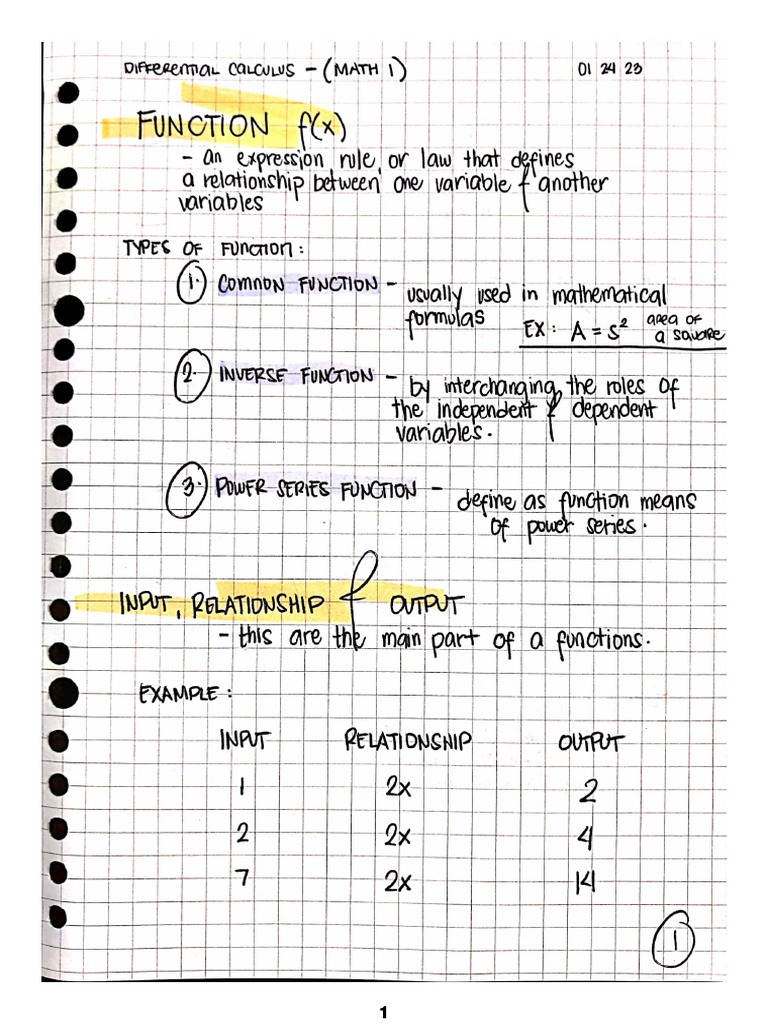 DIFFERENTIAL CALCULUS - (MATH 1) 01 24 23
FUNCTION f(x)
- an expression rule, or law that defines
a relationship between one variable & another
variables
TYPES OF FUNCTION:
1. COMMON FUNCTION - usually used in mathematical
formulas EX: A = s² area of
a square
2. INVERSE FUNCTION - by interchanging the roles of
the independent & dependent
variables.
3. POWER SERIES FUNCTION - define as function means
of power series.
INPUT, RELATIONSHIP & OUTPUT
- this are the main part of a functions.
EXAMPLE:
INPUT RELATIONSHIP OUTPUT
1 2x 2
2 2x 4
7 2x 14
1
1